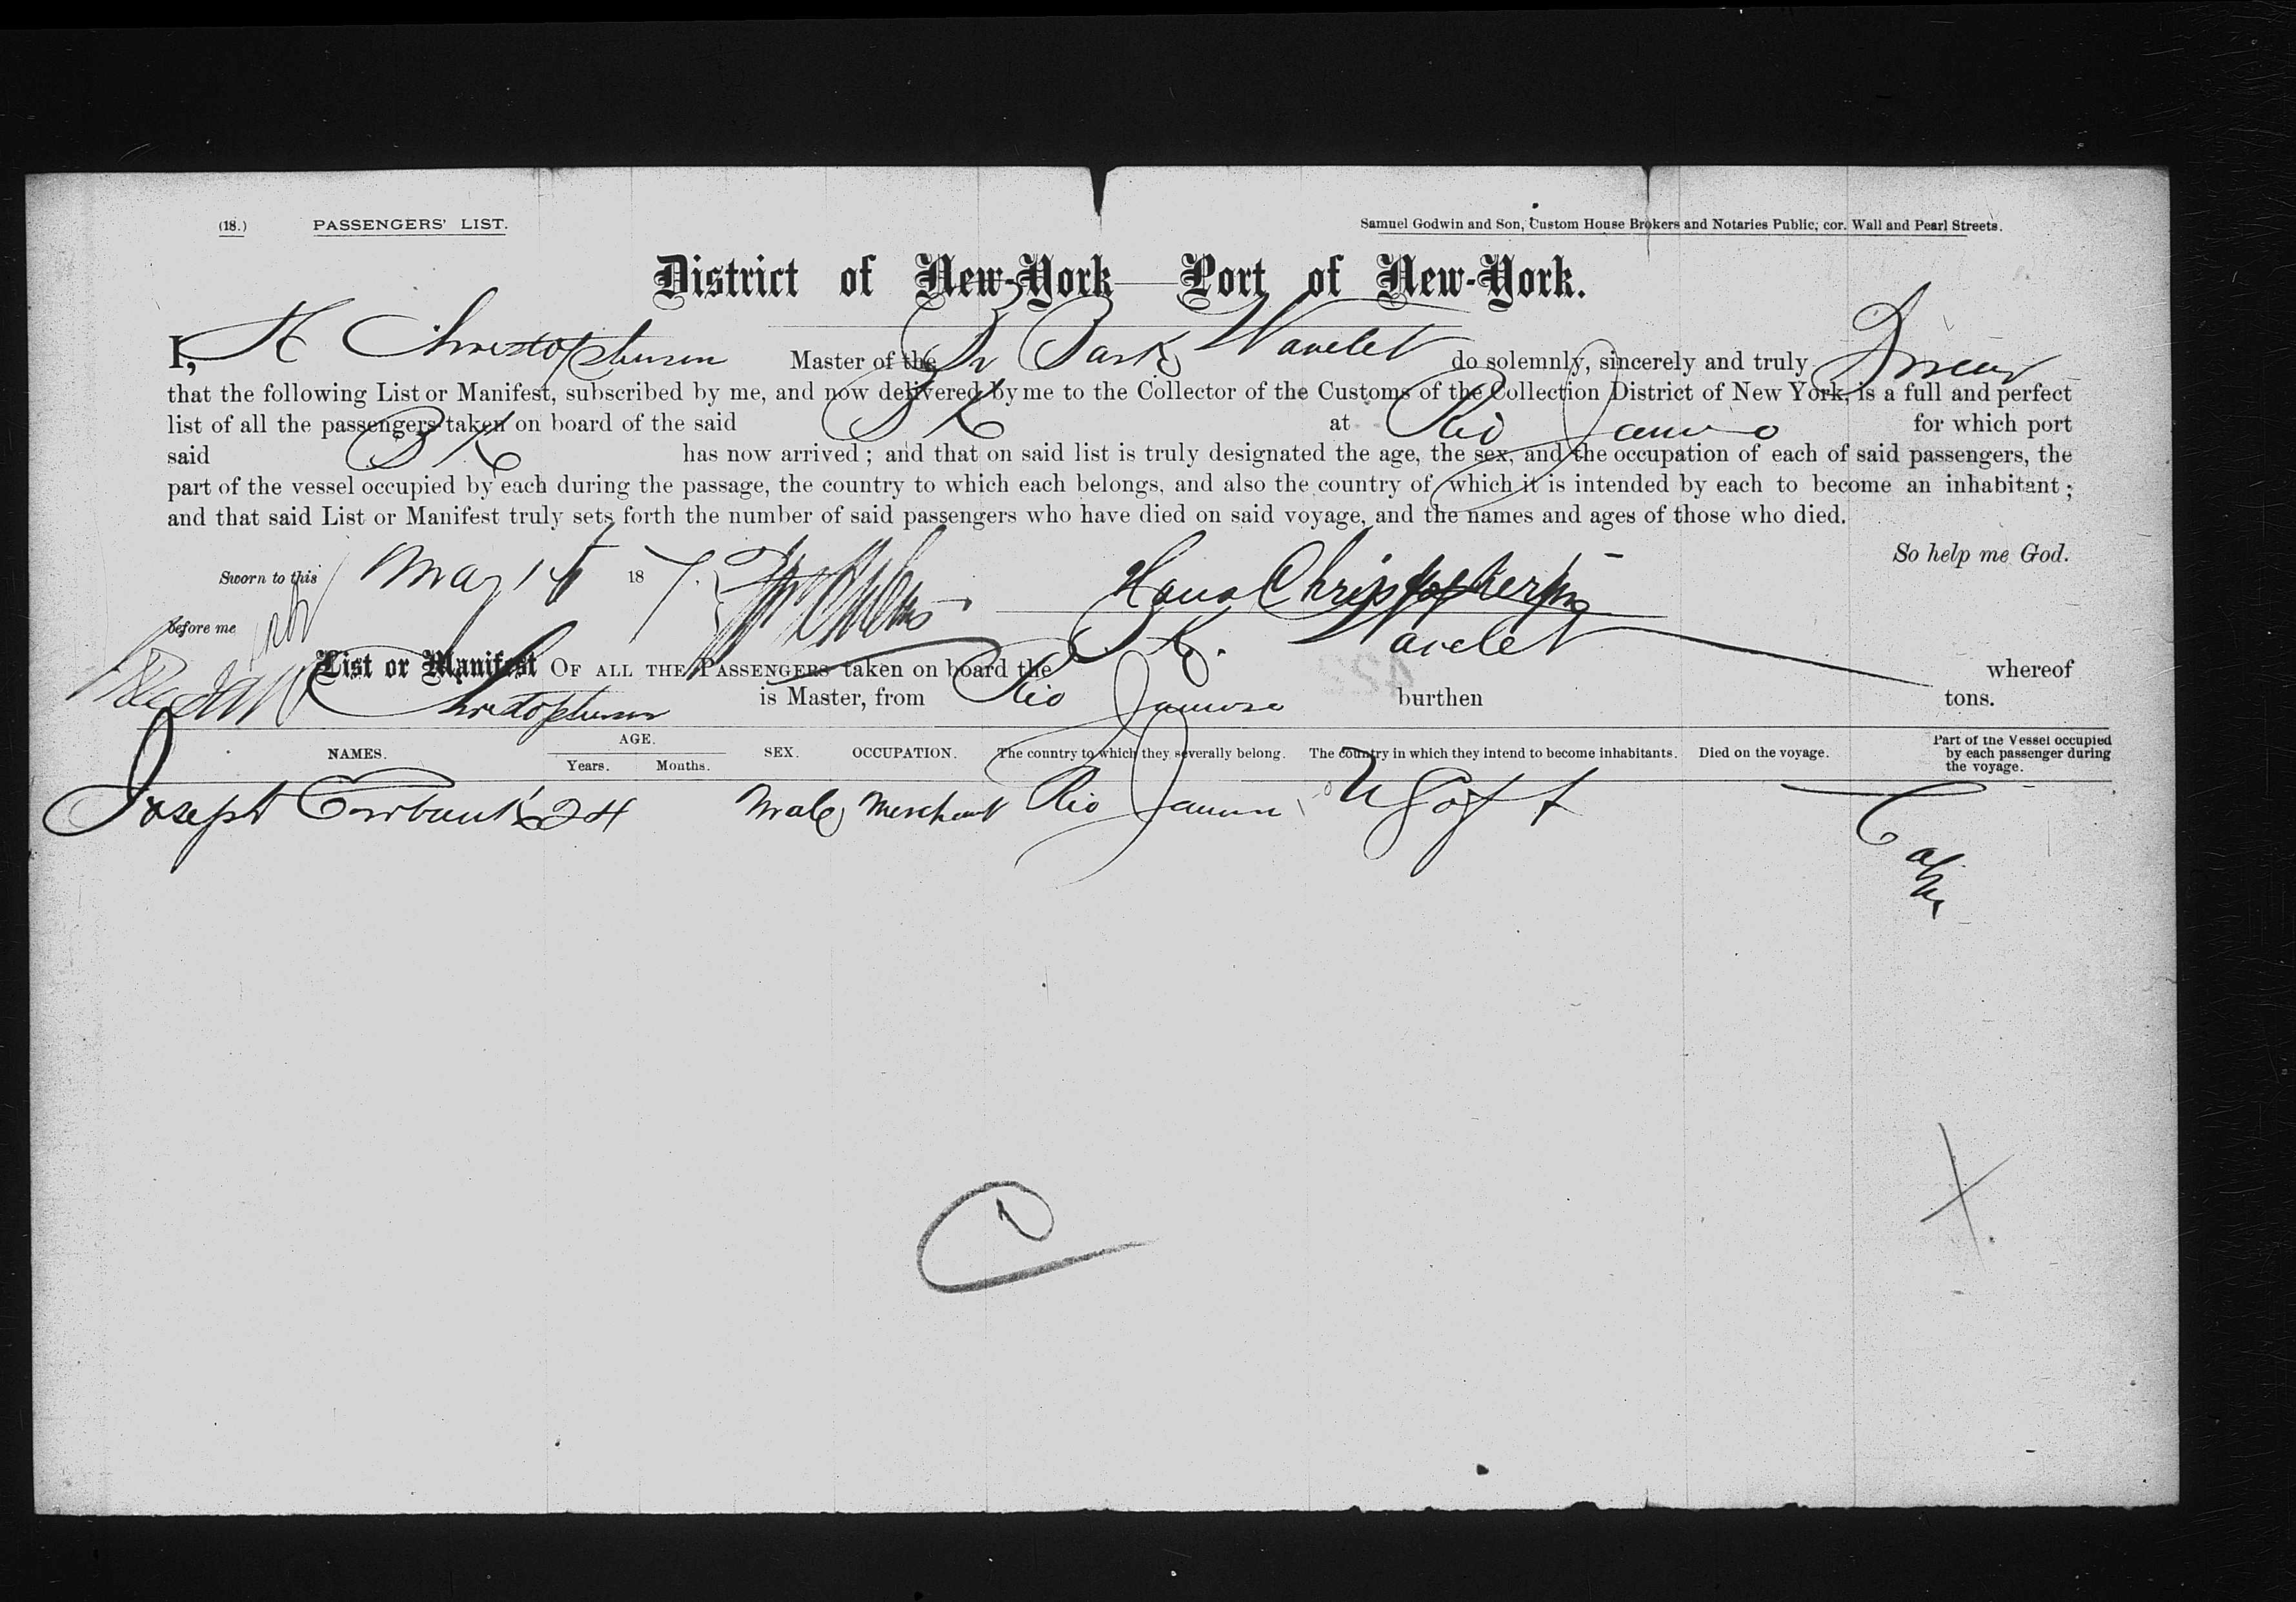 (18.) PASSENGERS' LIST. Samuel Godwin and Son, Custom House Brokers and Notaries Public; cor. Wall and Pearl Streets.
District of New-York—Port of New-York.
I, H Christophersen Master of the Br Bark Wavelet do solemnly, sincerely and truly Swear
that the following List or Manifest, subscribed by me, and now delivered by me to the Collector of the Customs of the Collection District of New York, is a full and perfect
list of all the passengers taken on board of the said BK at Rio Janeiro for which port
said BK has now arrived; and that on said list is truly designated the age, the sex, and the occupation of each of said passengers, the
part of the vessel occupied by each during the passage, the country to which each belongs, and also the country of which it is intended by each to become an inhabitant;
and that said List or Manifest truly sets forth the number of said passengers who have died on said voyage, and the names and ages of those who died.
So help me God.
Sworn to this May 187 Hans Christophersen
before me
List or Manifest OF ALL THE PASSENGERS taken on board the BK. Wavelet whereof
Christophersen is Master, from Rio Janeiro burthen tons.
NAMES. AGE. Years. Months. SEX. OCCUPATION. The country to which they severally belong. The country in which they intend to become inhabitants. Died on the voyage. Part of the Vessel occupied by each passenger during the voyage.
Joseph 24 Male Merchant Rio Janeiro Cabin